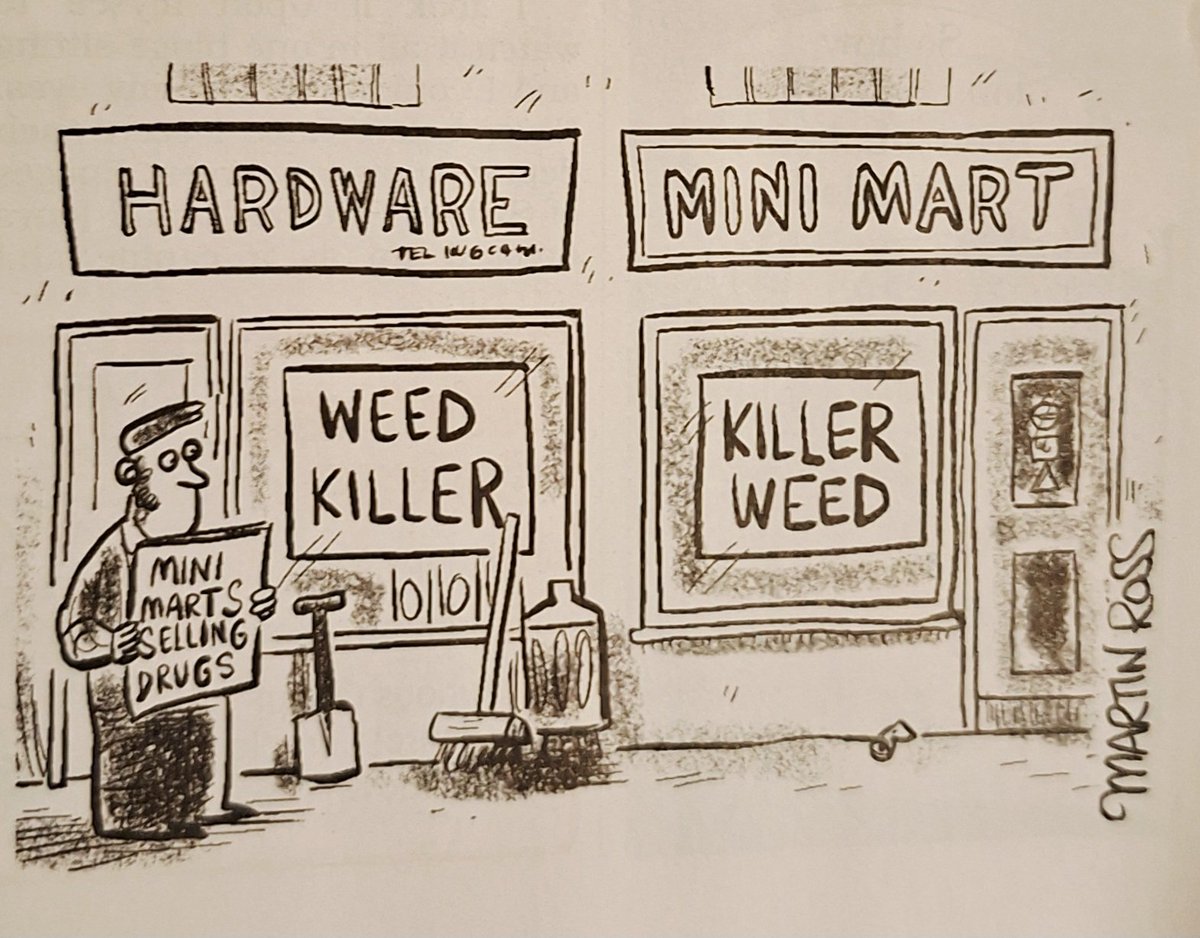 HARDWARE
MINI MART
WEED
KILLER
KILLER
WEED
MINI
MARTS
SELLING
DRUGS
MARTIN ROSS